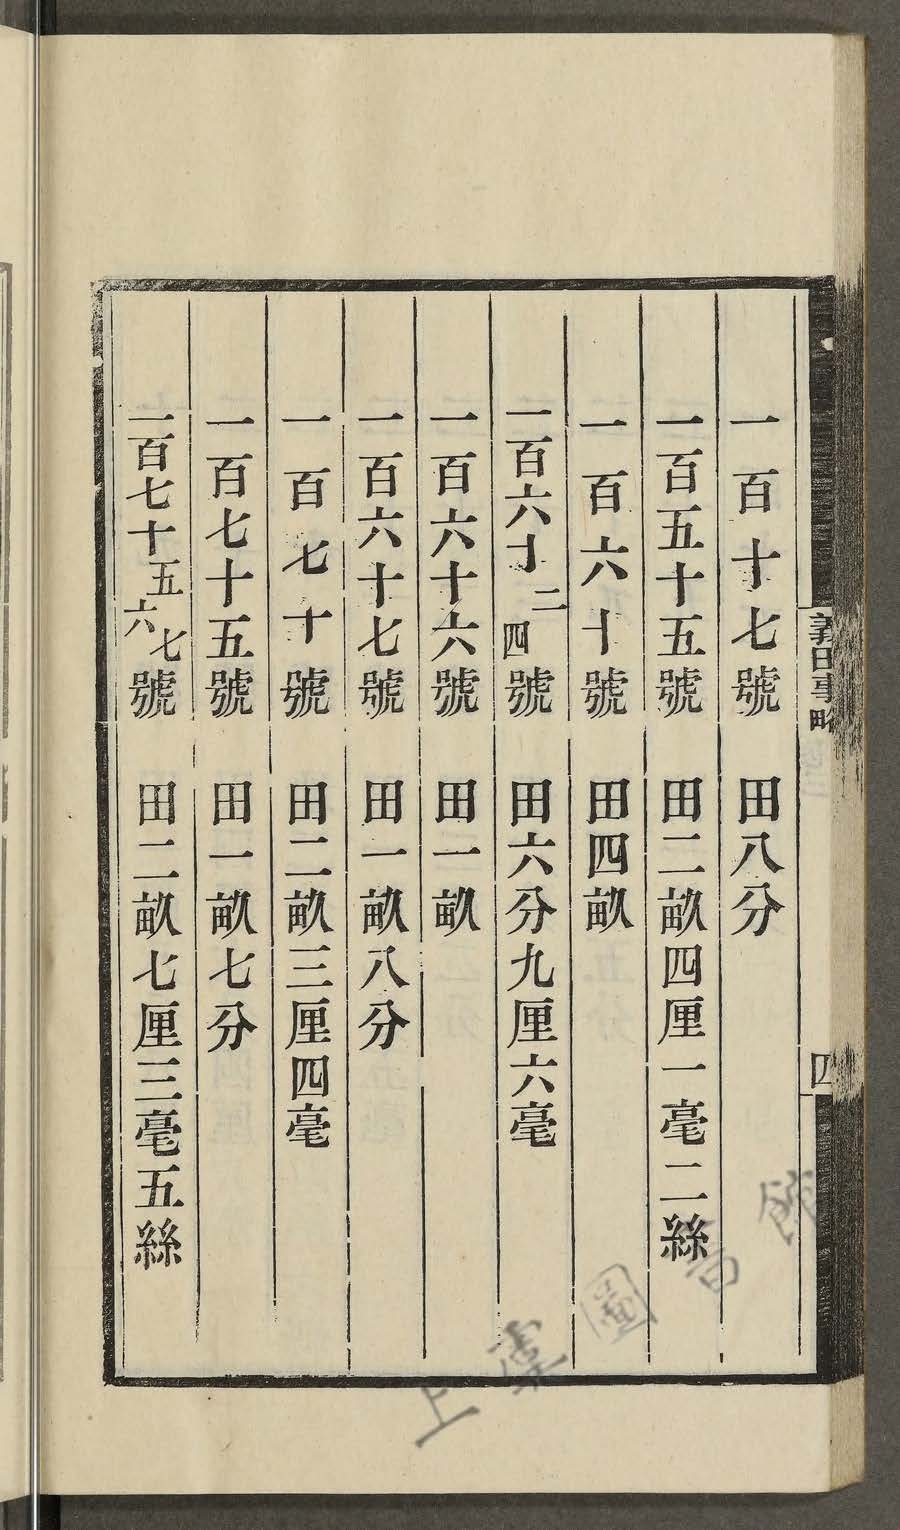 一百十七號　田八分
一百五十五號　田二畝四厘一毫二絲
一百六十號　田四畝
一百六十二四號　田六分九厘六毫
一百六十六號　田一畝
一百六十七號　田一畝八分
一百七十號　田二畝三厘四毫
一百七十五號　田一畝七分
一百七十五六七號　田二畝七厘三毫五絲
義田事略
四
上虞圖書館